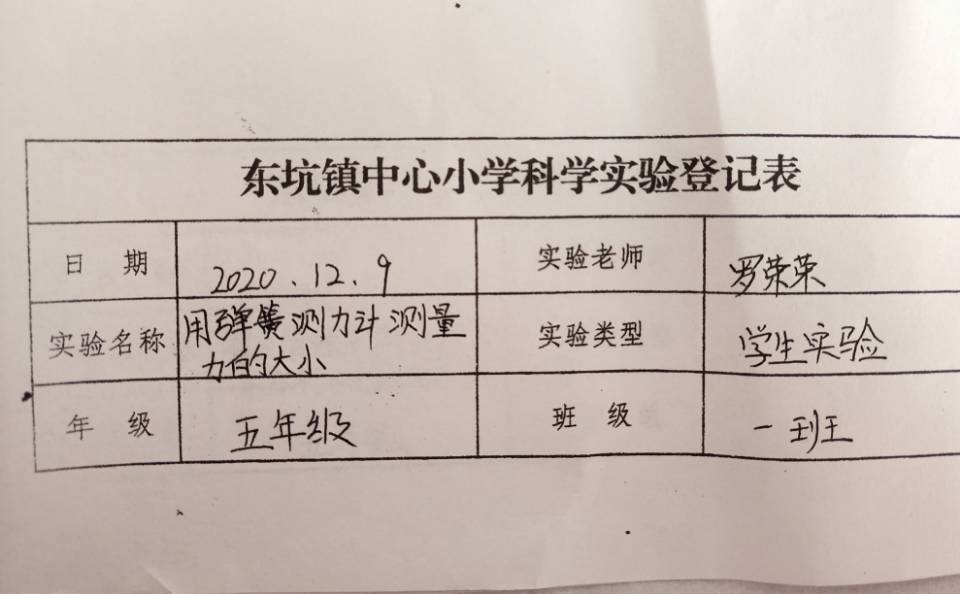 东坑镇中心小学科学实验登记表
日 期 2020.12.9 实验老师 罗荣荣
实验名称 用弹簧测力计测量 实验类型 学生实验
力的大小
年 级 五年级 班 级 一班